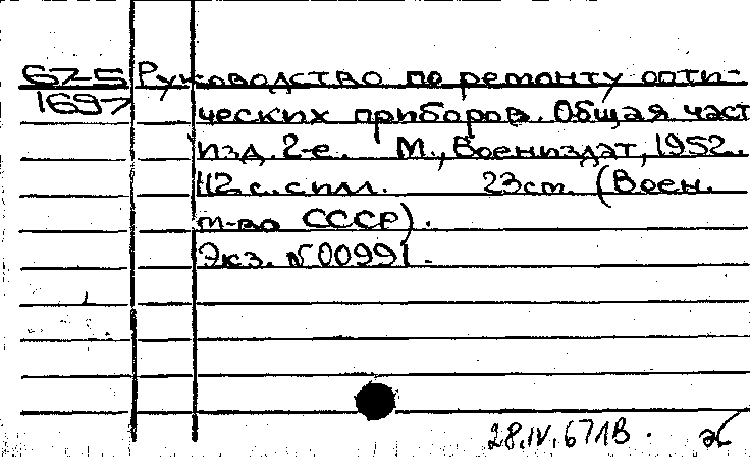 67-5 Руководство по ремонту опти-
1697 ческих приборов. Общая част
изд. 2-е. М., Воениздат, 1952.
112 с. с илл. 23 cm. (Воен.
м-во СССР).
Экз. № 00991.
28.IV.67 1В.